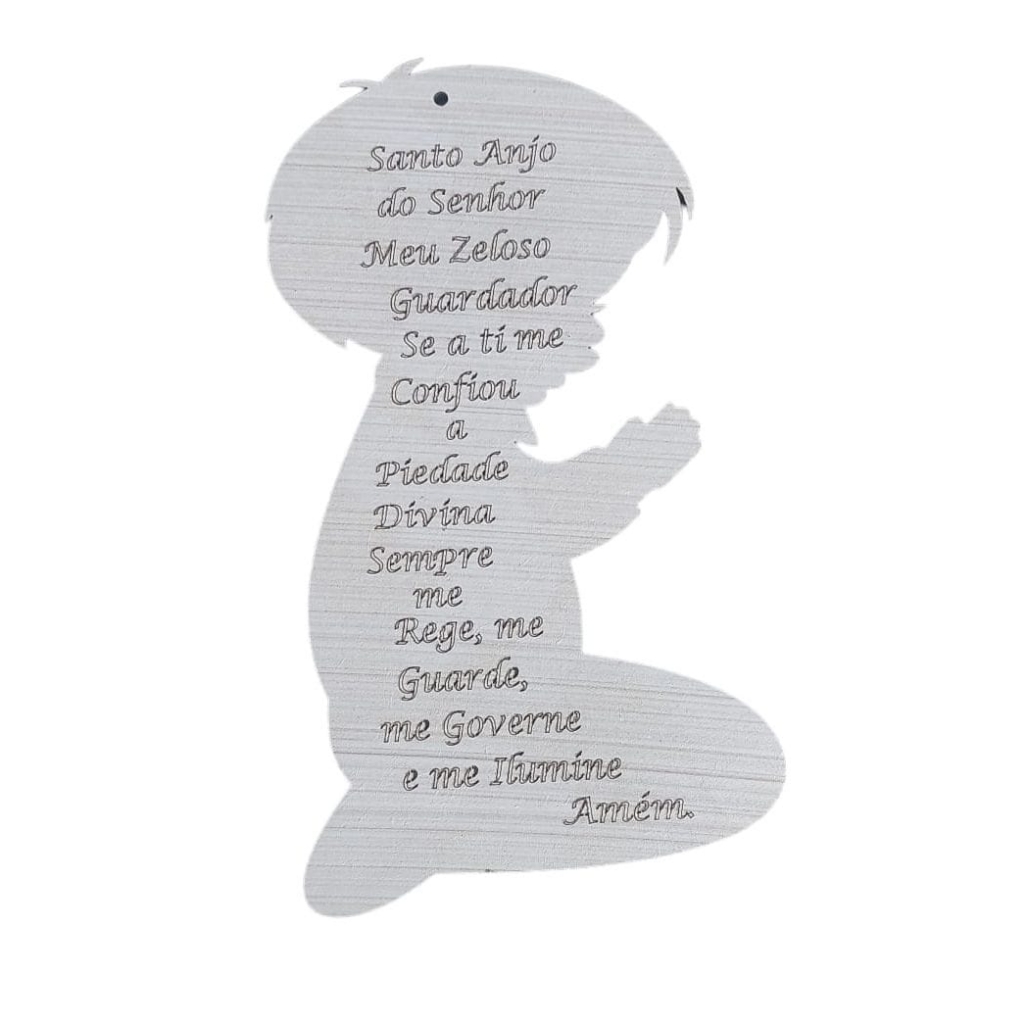 Santo Anjo
do Senhor
Meu Zeloso
Guardador
Se a ti me
Confiou
a
Piedade
Divina
Sempre
me
Rege, me
Guarde,
me Governe
e me Ilumine
Amém.